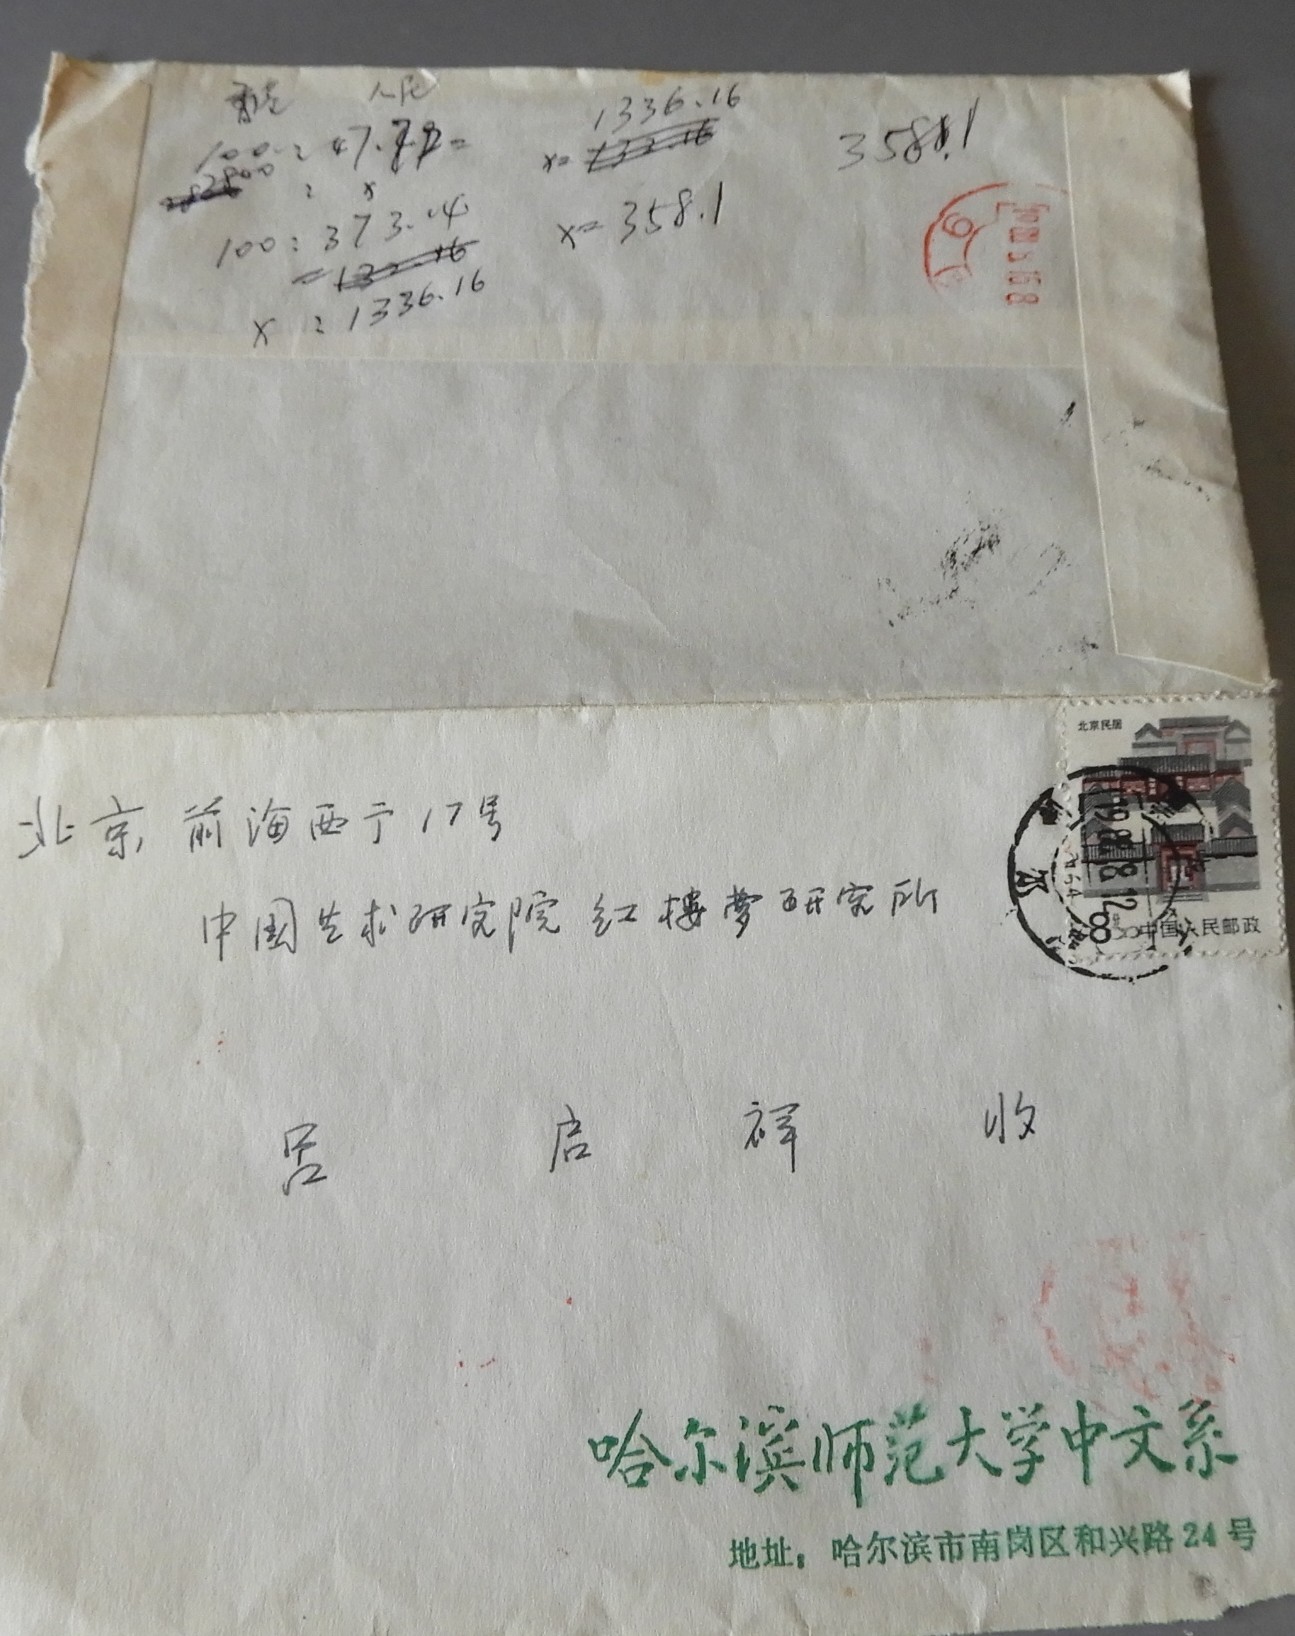 人民
100 : 47.72 =
2800 : x
100 : 373.14
x : 1336.16
1336.16
x = 358.1
358.1
北京民居
中国人民邮政
北京前海西亍17号
中国艺术研究院红楼梦研究所
吕启祥 收
哈尔滨师范大学中文系
地址：哈尔滨市南岗区和兴路24号